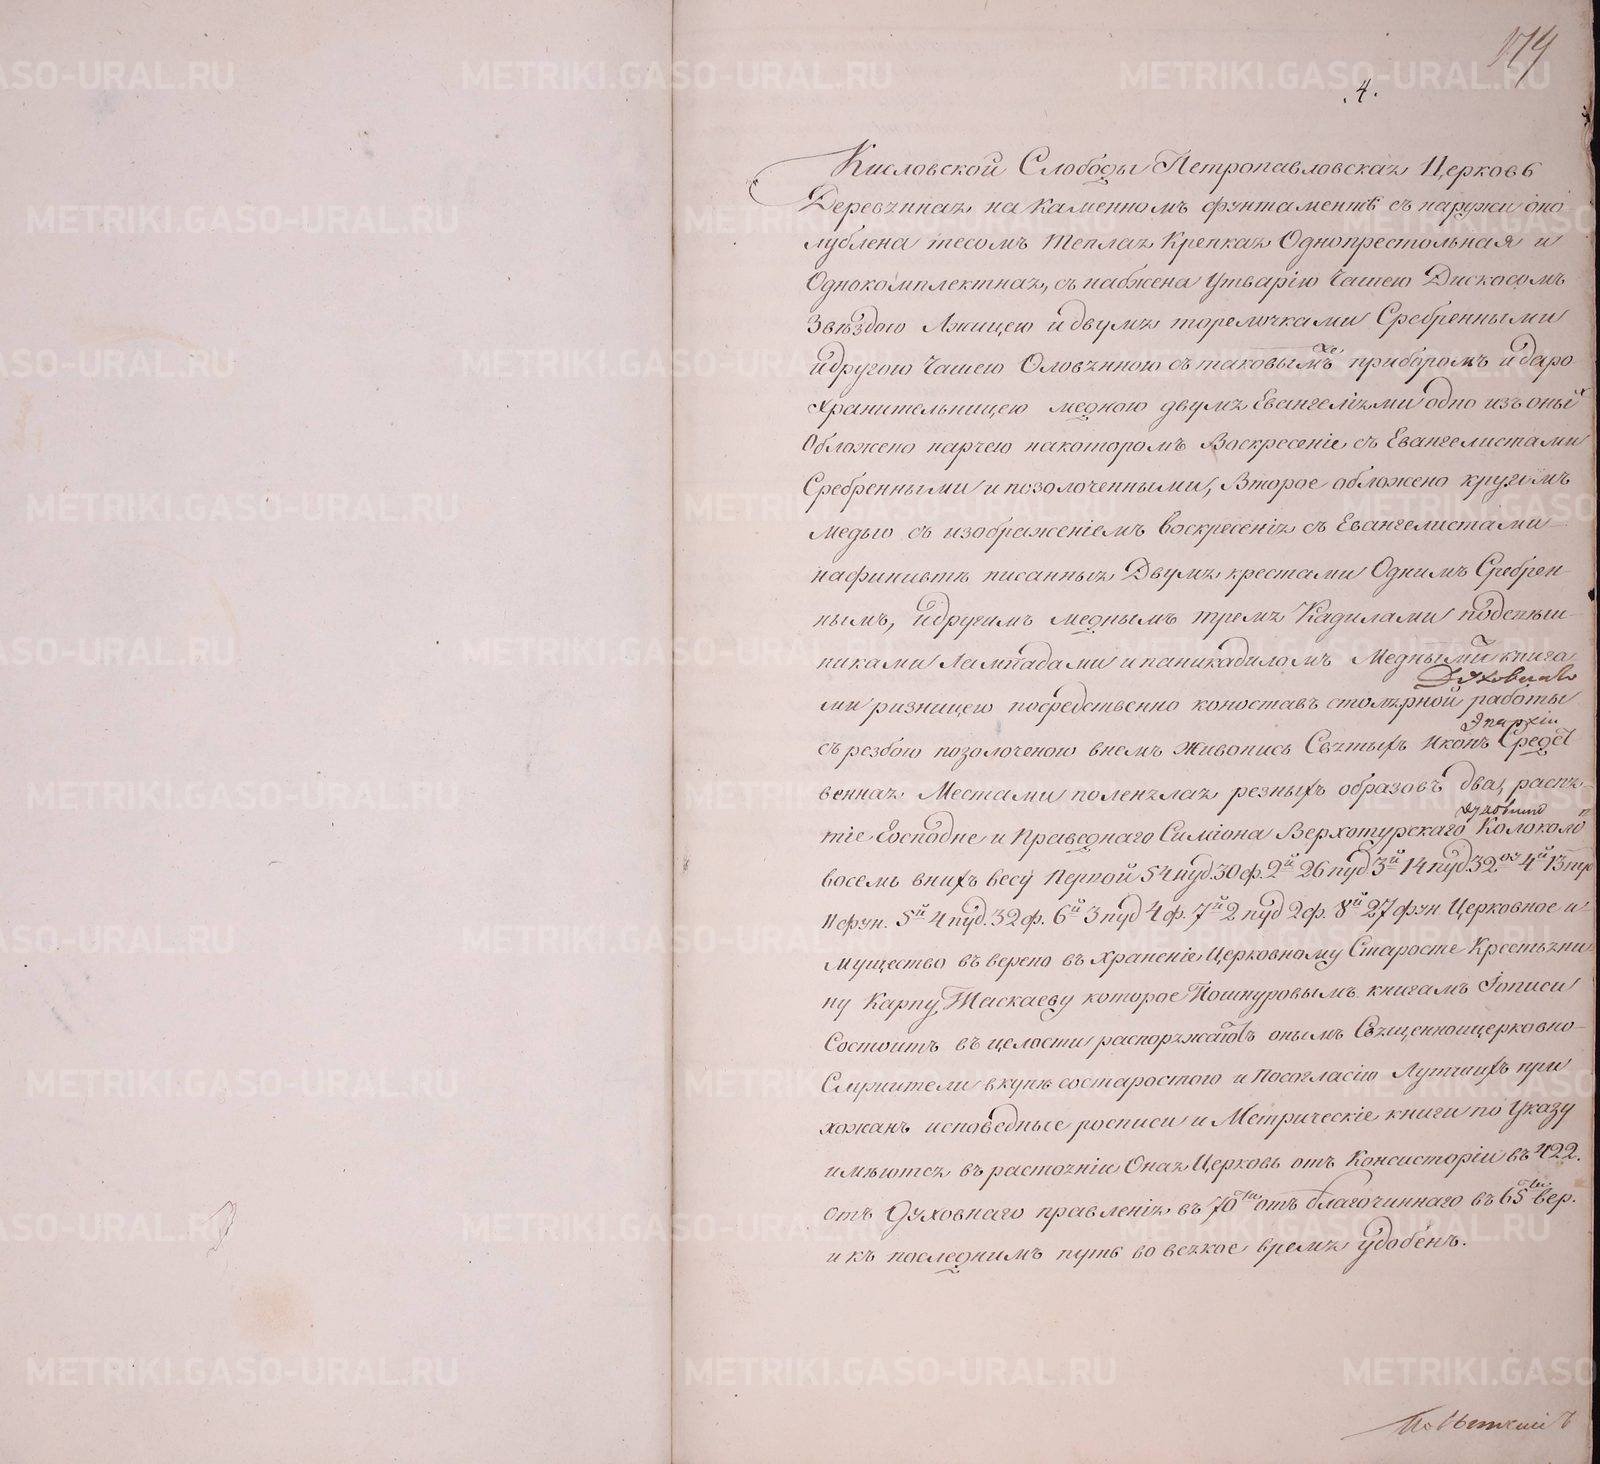 174
.4.
Кисловской Слободы Петропавловская Церковь
Деревянная на каменномъ фунтаментѣ съ наружи око
лублена тесомъ теплая крепкая Однопрестольная и
Однокомплектная, съ набжена Утварію Чашею Дискосомъ
Звѣздою Лжицею и двумя торелочками Сребренными
и другою Чашею Оловянною съ таковымъ же приборомъ и даро
хранительницею медною двумя Евангеліями одно изъ оныхъ
Обложено парчею на которомъ Воскресеніе съ Евангелистами
Сребренными и позолоченными, Второе обложено кругомъ
медью съ изображеніемъ Воскресенія съ Евангелистами
на финивтѣ писанныя Двумя крестами Однимъ Сребрен-
нымъ, и другимъ меднымъ тремя Кадилами подсвѣш-
никами Лампадами и паникадиломъ Медными книга
Духовнаво
ми ризницею посредственно коноставъ столярной работы
Эпархіи
съ резбою позолоченою внемъ живопись Святыхъ иконъ Средст
венная Местами полеияла резныхъ образовъ два, распя-
духовнаго
тіе Господне и Праведнаго Симіона Верхотурскаго Колоколо
восемь внихъ весу Первой 54 пуд. 30 ф. 2й 26 пуд 3й 14 пуд. 32 4й 13 пуд
11 фун. 5й 4 пуд. 32 ф. 6й 3 пуд 4 ф. 7й 2 пуд 2 ф. 8й 27 фун Церковное и
мущество въверено въ храненіе Церковному Старосте Крестьяни
ну Карпу Таскаеву которое Пошнуровымъ книгамъ Iописи
Состоитъ въ целости распоряжаютъ онымъ Священноицерковно-
Служители вкупѣ состаростою и Посогласію Лутчихъ при
хожанъ исповедные росписи и Метрическіе книги по Указу
имѣются въ растояніи Оная Церковь отъ Консисторіи въ 422.
отъ Духовнаго правленія въ 70ти отъ благочиннаго въ 65ти вер.
и къ последнимъ путь во всякое время удобенъ.